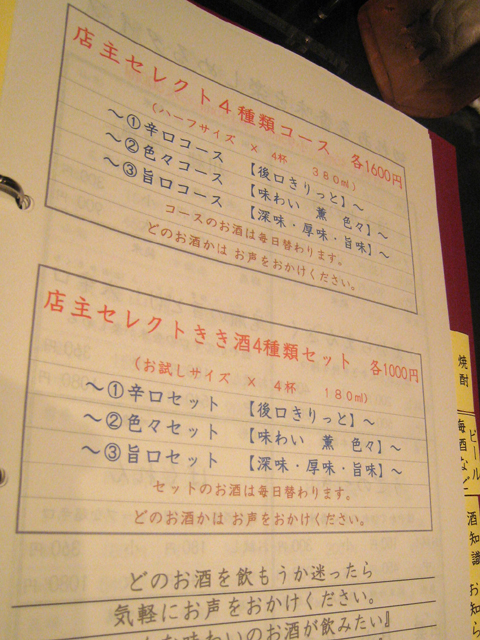 店主セレクト4種類コース 各1600円
(ハーフサイズ × 4杯 360ml)
～①辛口コース 【後口きりっと】～
～②色々コース 【味わい 薫 色々】～
～③旨口コース 【深味・厚味・旨味】～
コースのお酒は毎日替わります。
どのお酒かは お声をおかけください。
店主セレクトきき酒4種類セット 各1000円
(お試しサイズ × 4杯 180ml)
～①辛口セット 【後口きりっと】～
～②色々セット 【味わい 薫 色々】～
～③旨口セット 【深味・厚味・旨味】～
セットのお酒は毎日替わります。
どのお酒かは お声をおかけください。
どのお酒を飲もうか迷ったら
気軽にお声をおかけください。
な味わいのお酒が飲みたい』
焼酎
ビール
梅酒など
酒知識
お知ら